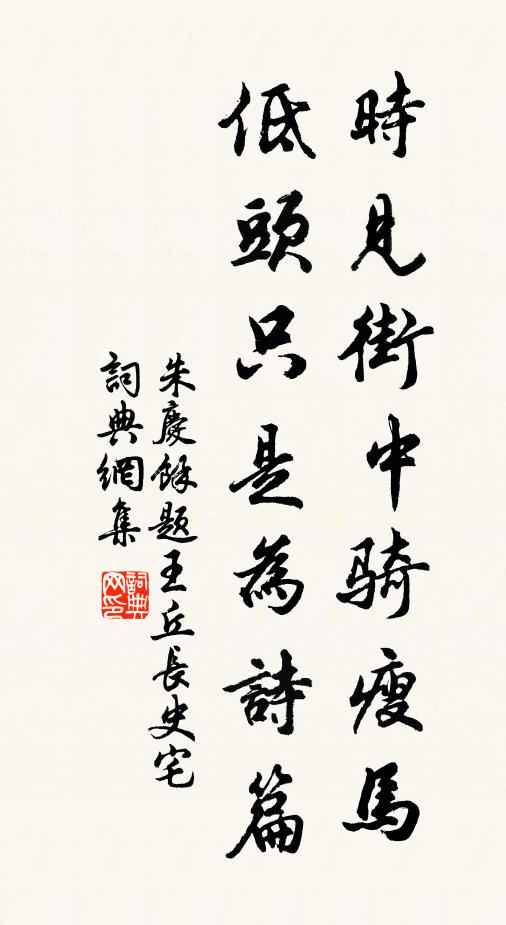 時見街中騎瘦馬
低頭只是為詩篇
朱慶餘題王丘長史宅
詞典網集
詞典
网印